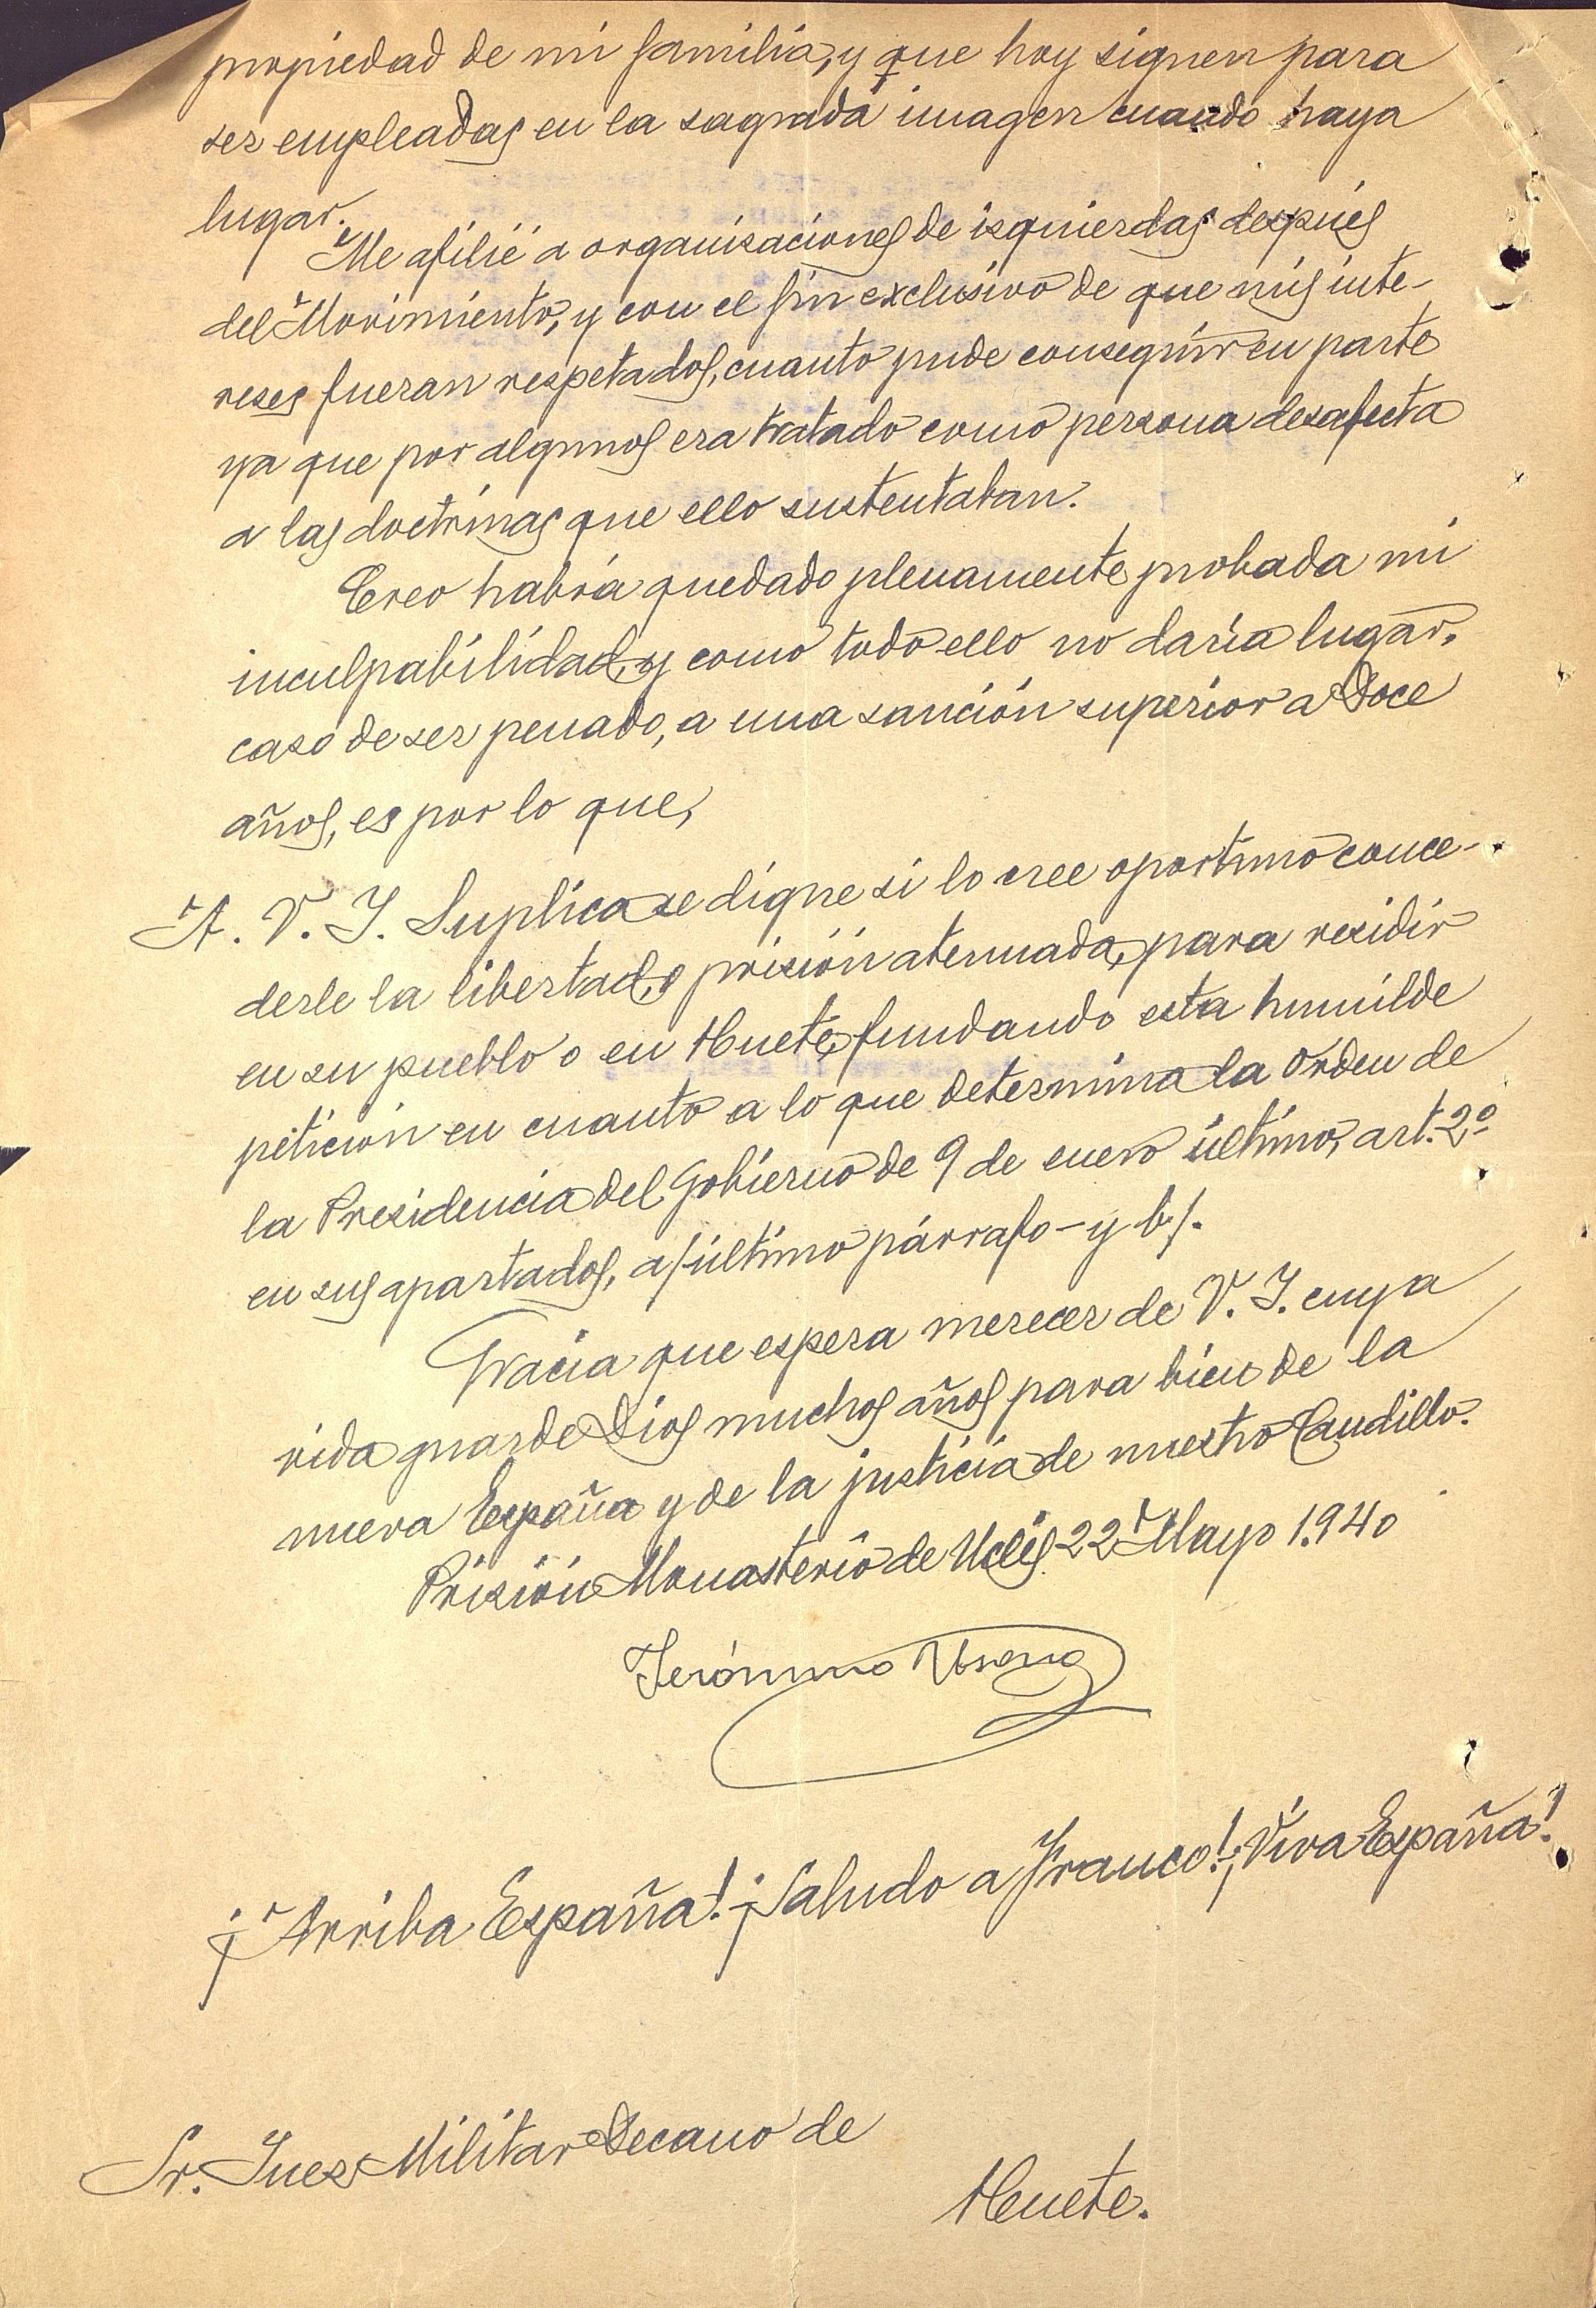 propiedad de mi familia, y que hoy siguen para
ser empleadas en la sagrada imagen cuando haya
lugar.
Me afilié a organisaciones de isquierdas después
del Movimiento, y con el fin exclusivo de que mis inte-
reses fueran respetados, cuanto pude conseguir en parte
ya que por algunos era tratado como persona desafecta
a las doctrinas que ello sustentaban.
Creo habrá quedado plenamente probada mi
inculpabilidad, y como todo ello no daría lugar,
caso de ser penado, a una sanción superior a Doce
años, es por lo que,
A. V. I. Suplica se digne si lo cree oportuno conce-
derle la libertad, o prisión atenuada, para residir
en su pueblo o en Huete, fundando esta humilde
petición en cuanto a lo que determina la orden de
la Presidencia del Gobierno de 9 de enero último, art. 2º
en sus apartados, a/ último párrafo - y b/.
Gracia que espera merecer de V. I. cuya
vida guarde Dios muchos años para bien de la
nueva España y de la justicia de nuestro Caudillo.
Prisión Monasterio de Uclés 22 Mayo 1.940
Jerónimo
¡Arriba España! ¡Saludo a Franco! ¡Viva España!
Sr. Jues Militar Decano de
Huete.